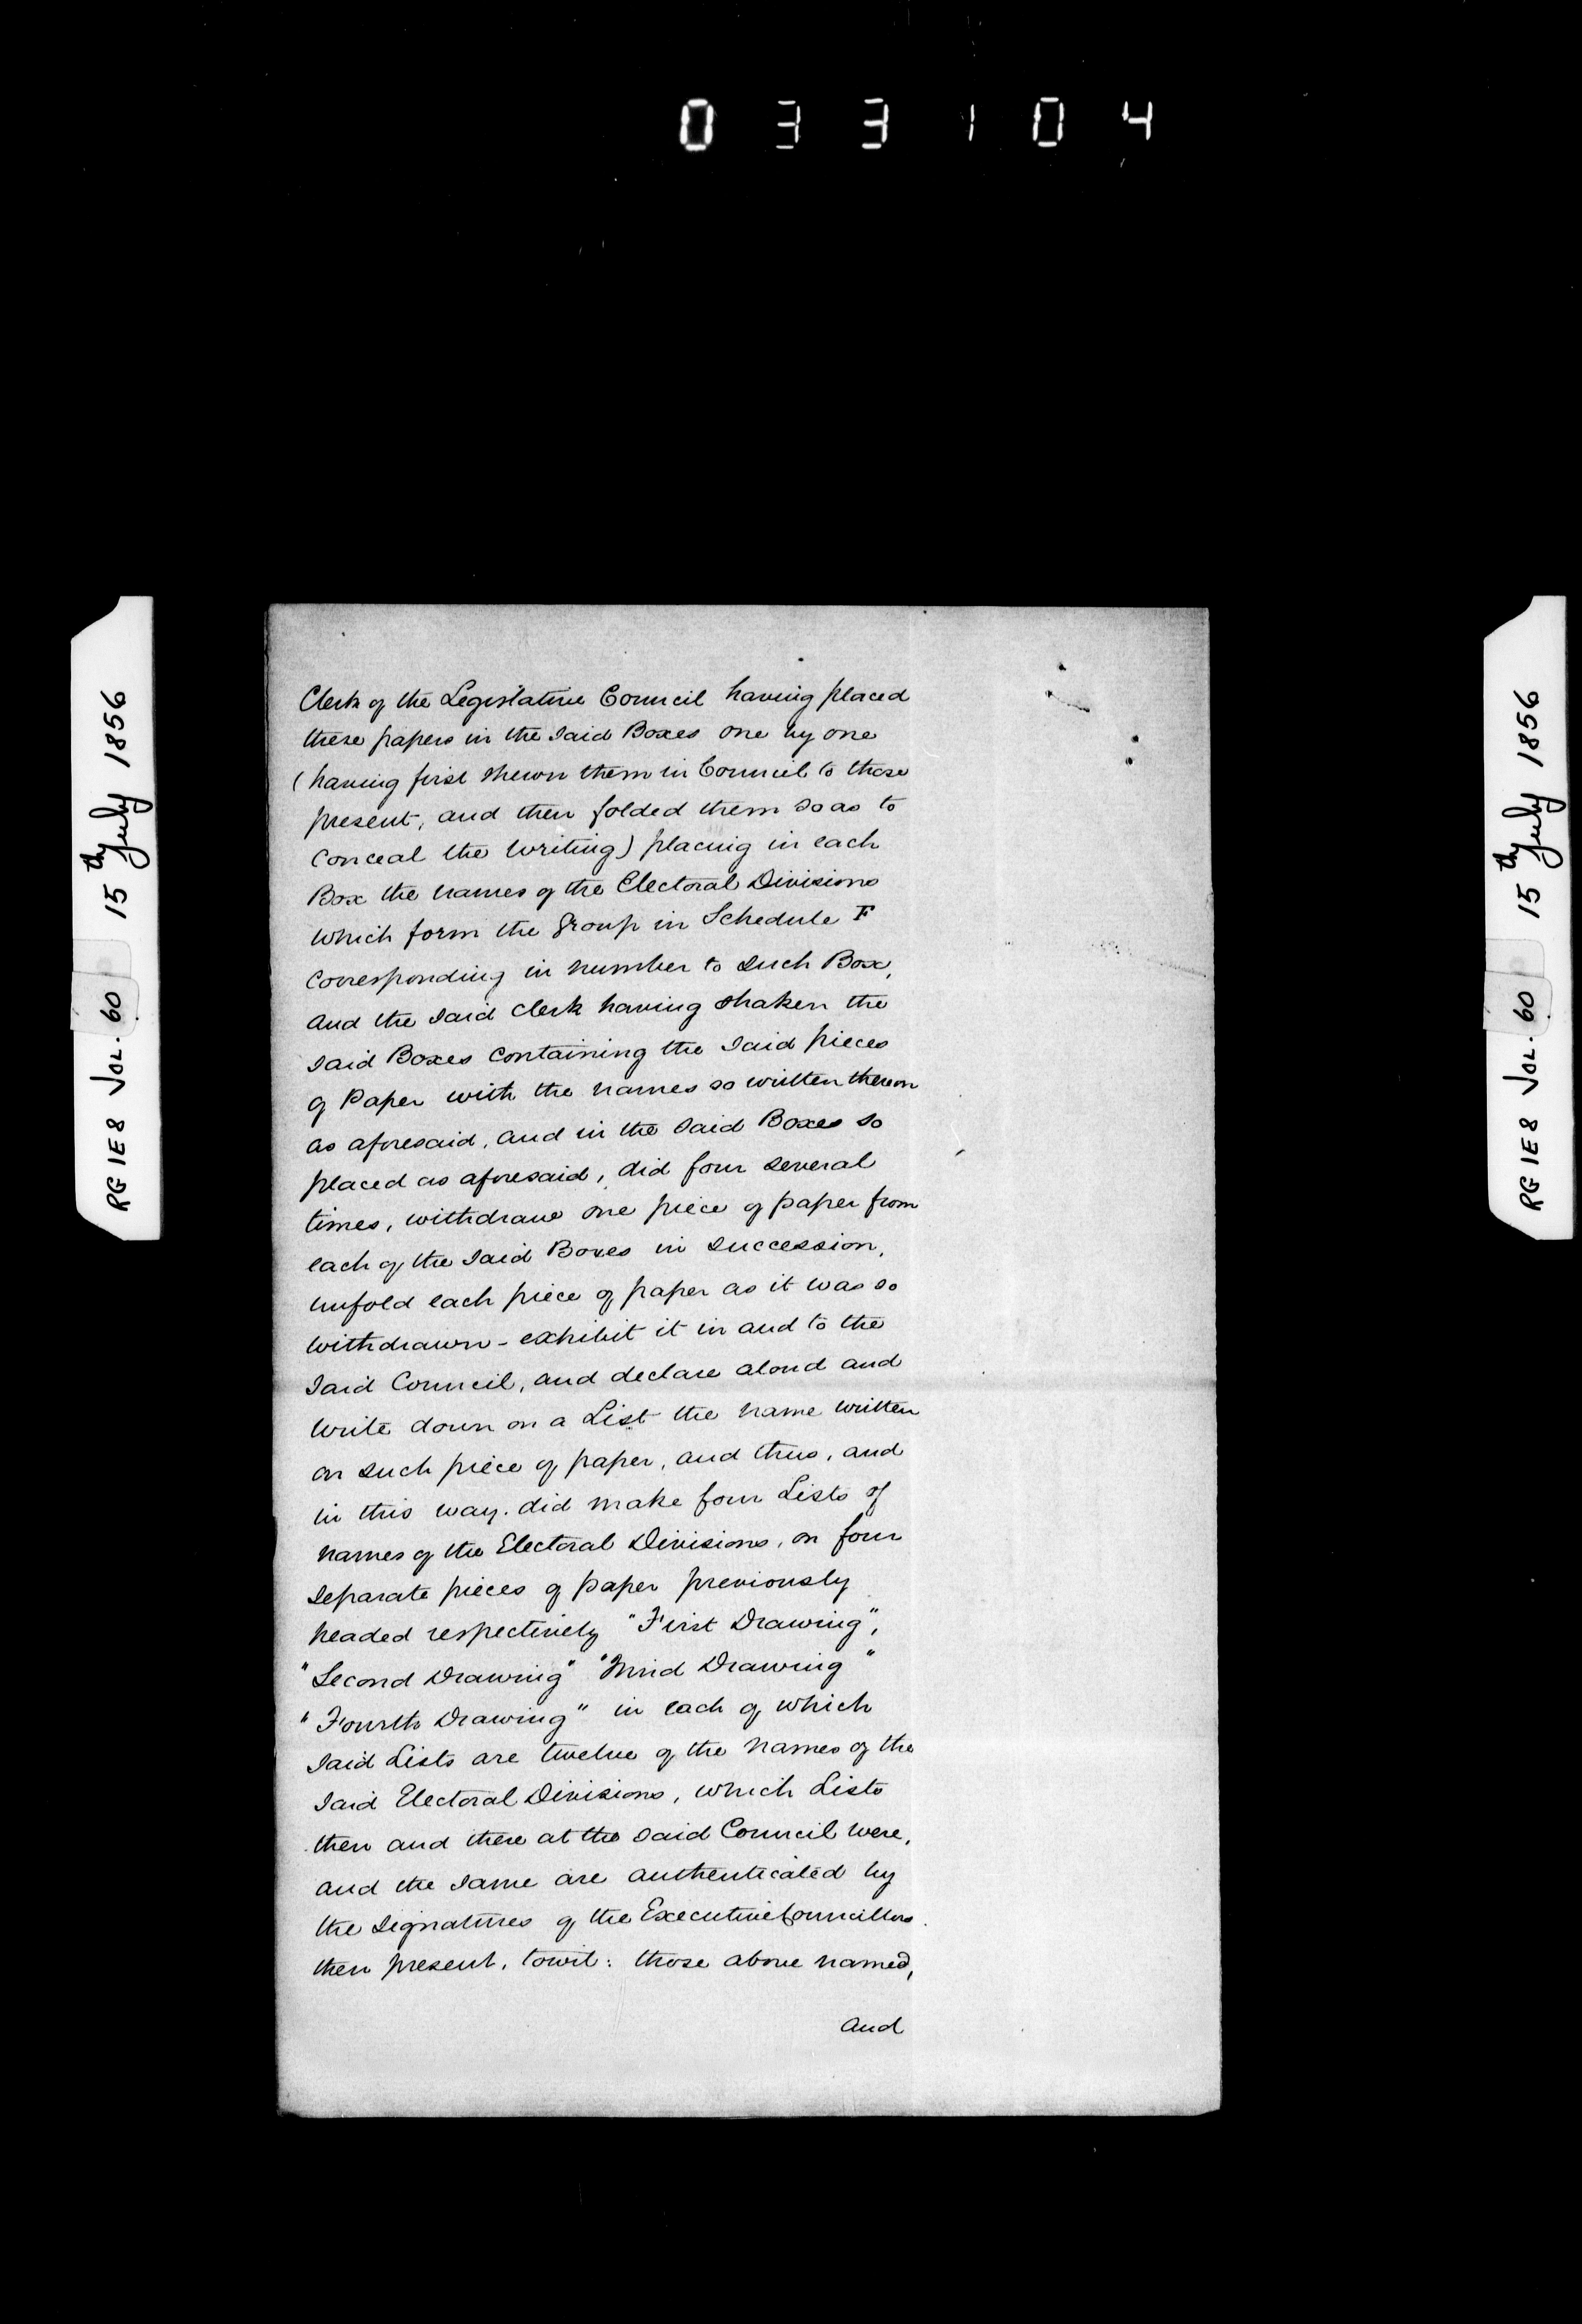 033104
RG 1E8 VOL. 60 15th July 1856
Clerk of the Legislative Council having placed
these papers in the said Boxes one by one
(having first shewn them in Council to those
present, and then folded them so as to
conceal the writing) placing in each
Box the names of the Electoral Divisions
which form the Group in Schedule F
corresponding in number to such Box,
and the said Clerk having shaken the
said Boxes containing the said pieces
of Paper with the names so written thereon
as aforesaid, and in the said Boxes so
placed as aforesaid, did four several
times, withdraw one piece of paper from
each of the said Boxes in succession,
unfold each piece of paper as it was so
withdrawn - exhibit it in and to the
said Council, and declare aloud and
write down on a List the name written
on such piece of paper, and thus, and
in this way. did make four Lists of
names of the Electoral Divisions, on four
separate pieces of paper previously
headed respectively "First Drawing",
"Second Drawing" "Third Drawing"
"Fourth Drawing" in each of which
said Lists are twelve of the names of the
said Electoral Divisions, which Lists
then and there at the said Council were,
and the same are authenticated by
the signatures of the Executive Councillors
then present, towit: those above named,
and
RG 1E8 VOL. 60 15th July 1856